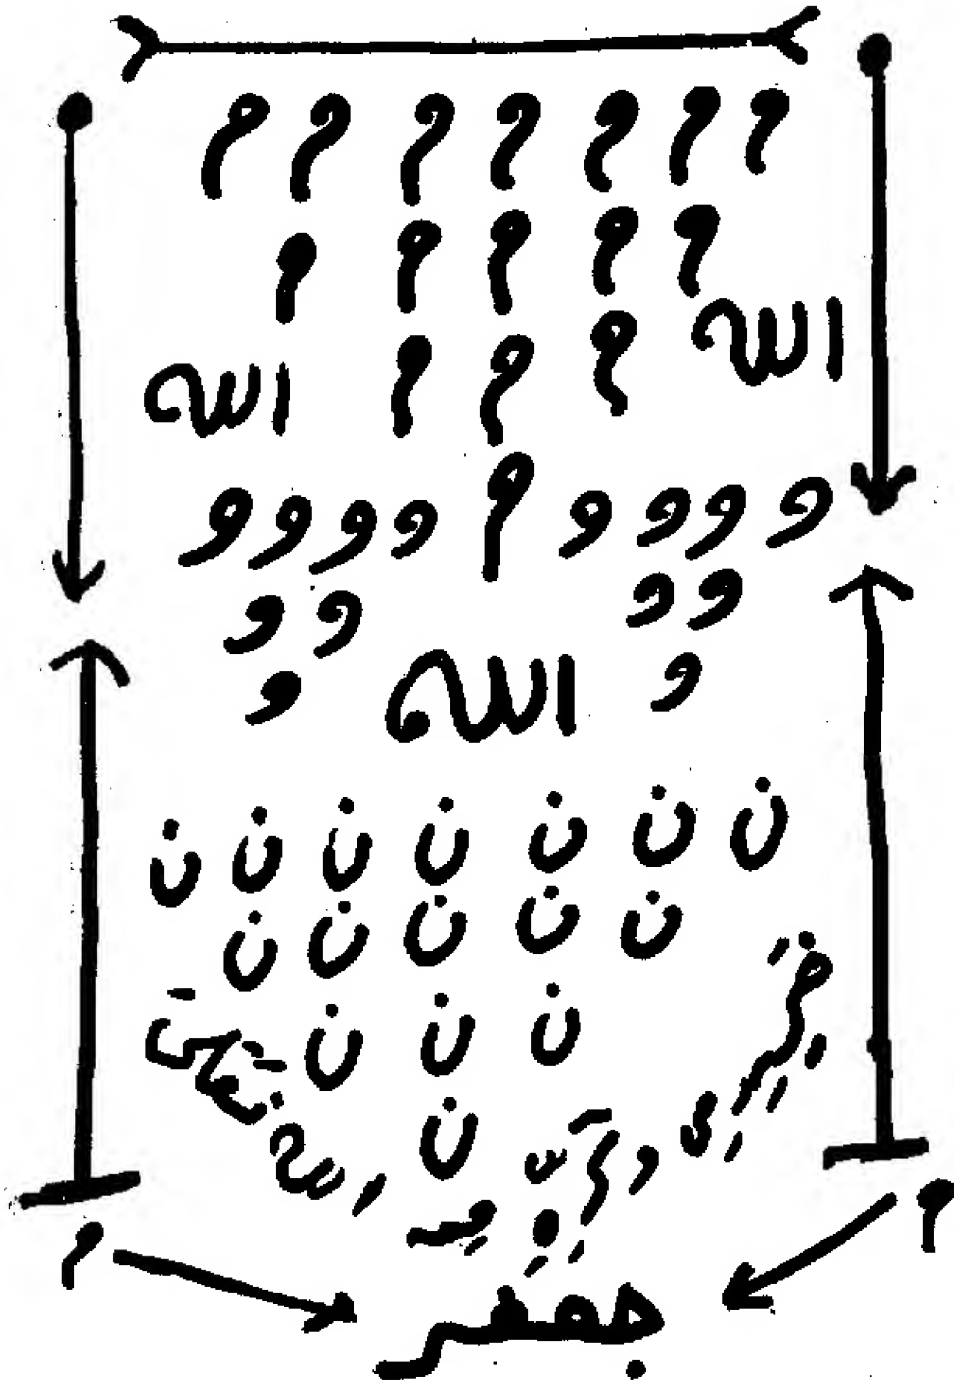 م م م م م م م
م م م م م
الله م م م الله
و و و و م و و و و
و و و و
و الله و
ن ن ن ن ن ن ن
ن ن ن ن ن
ن ن ن
ن
الله تعالى
م م
جعفر